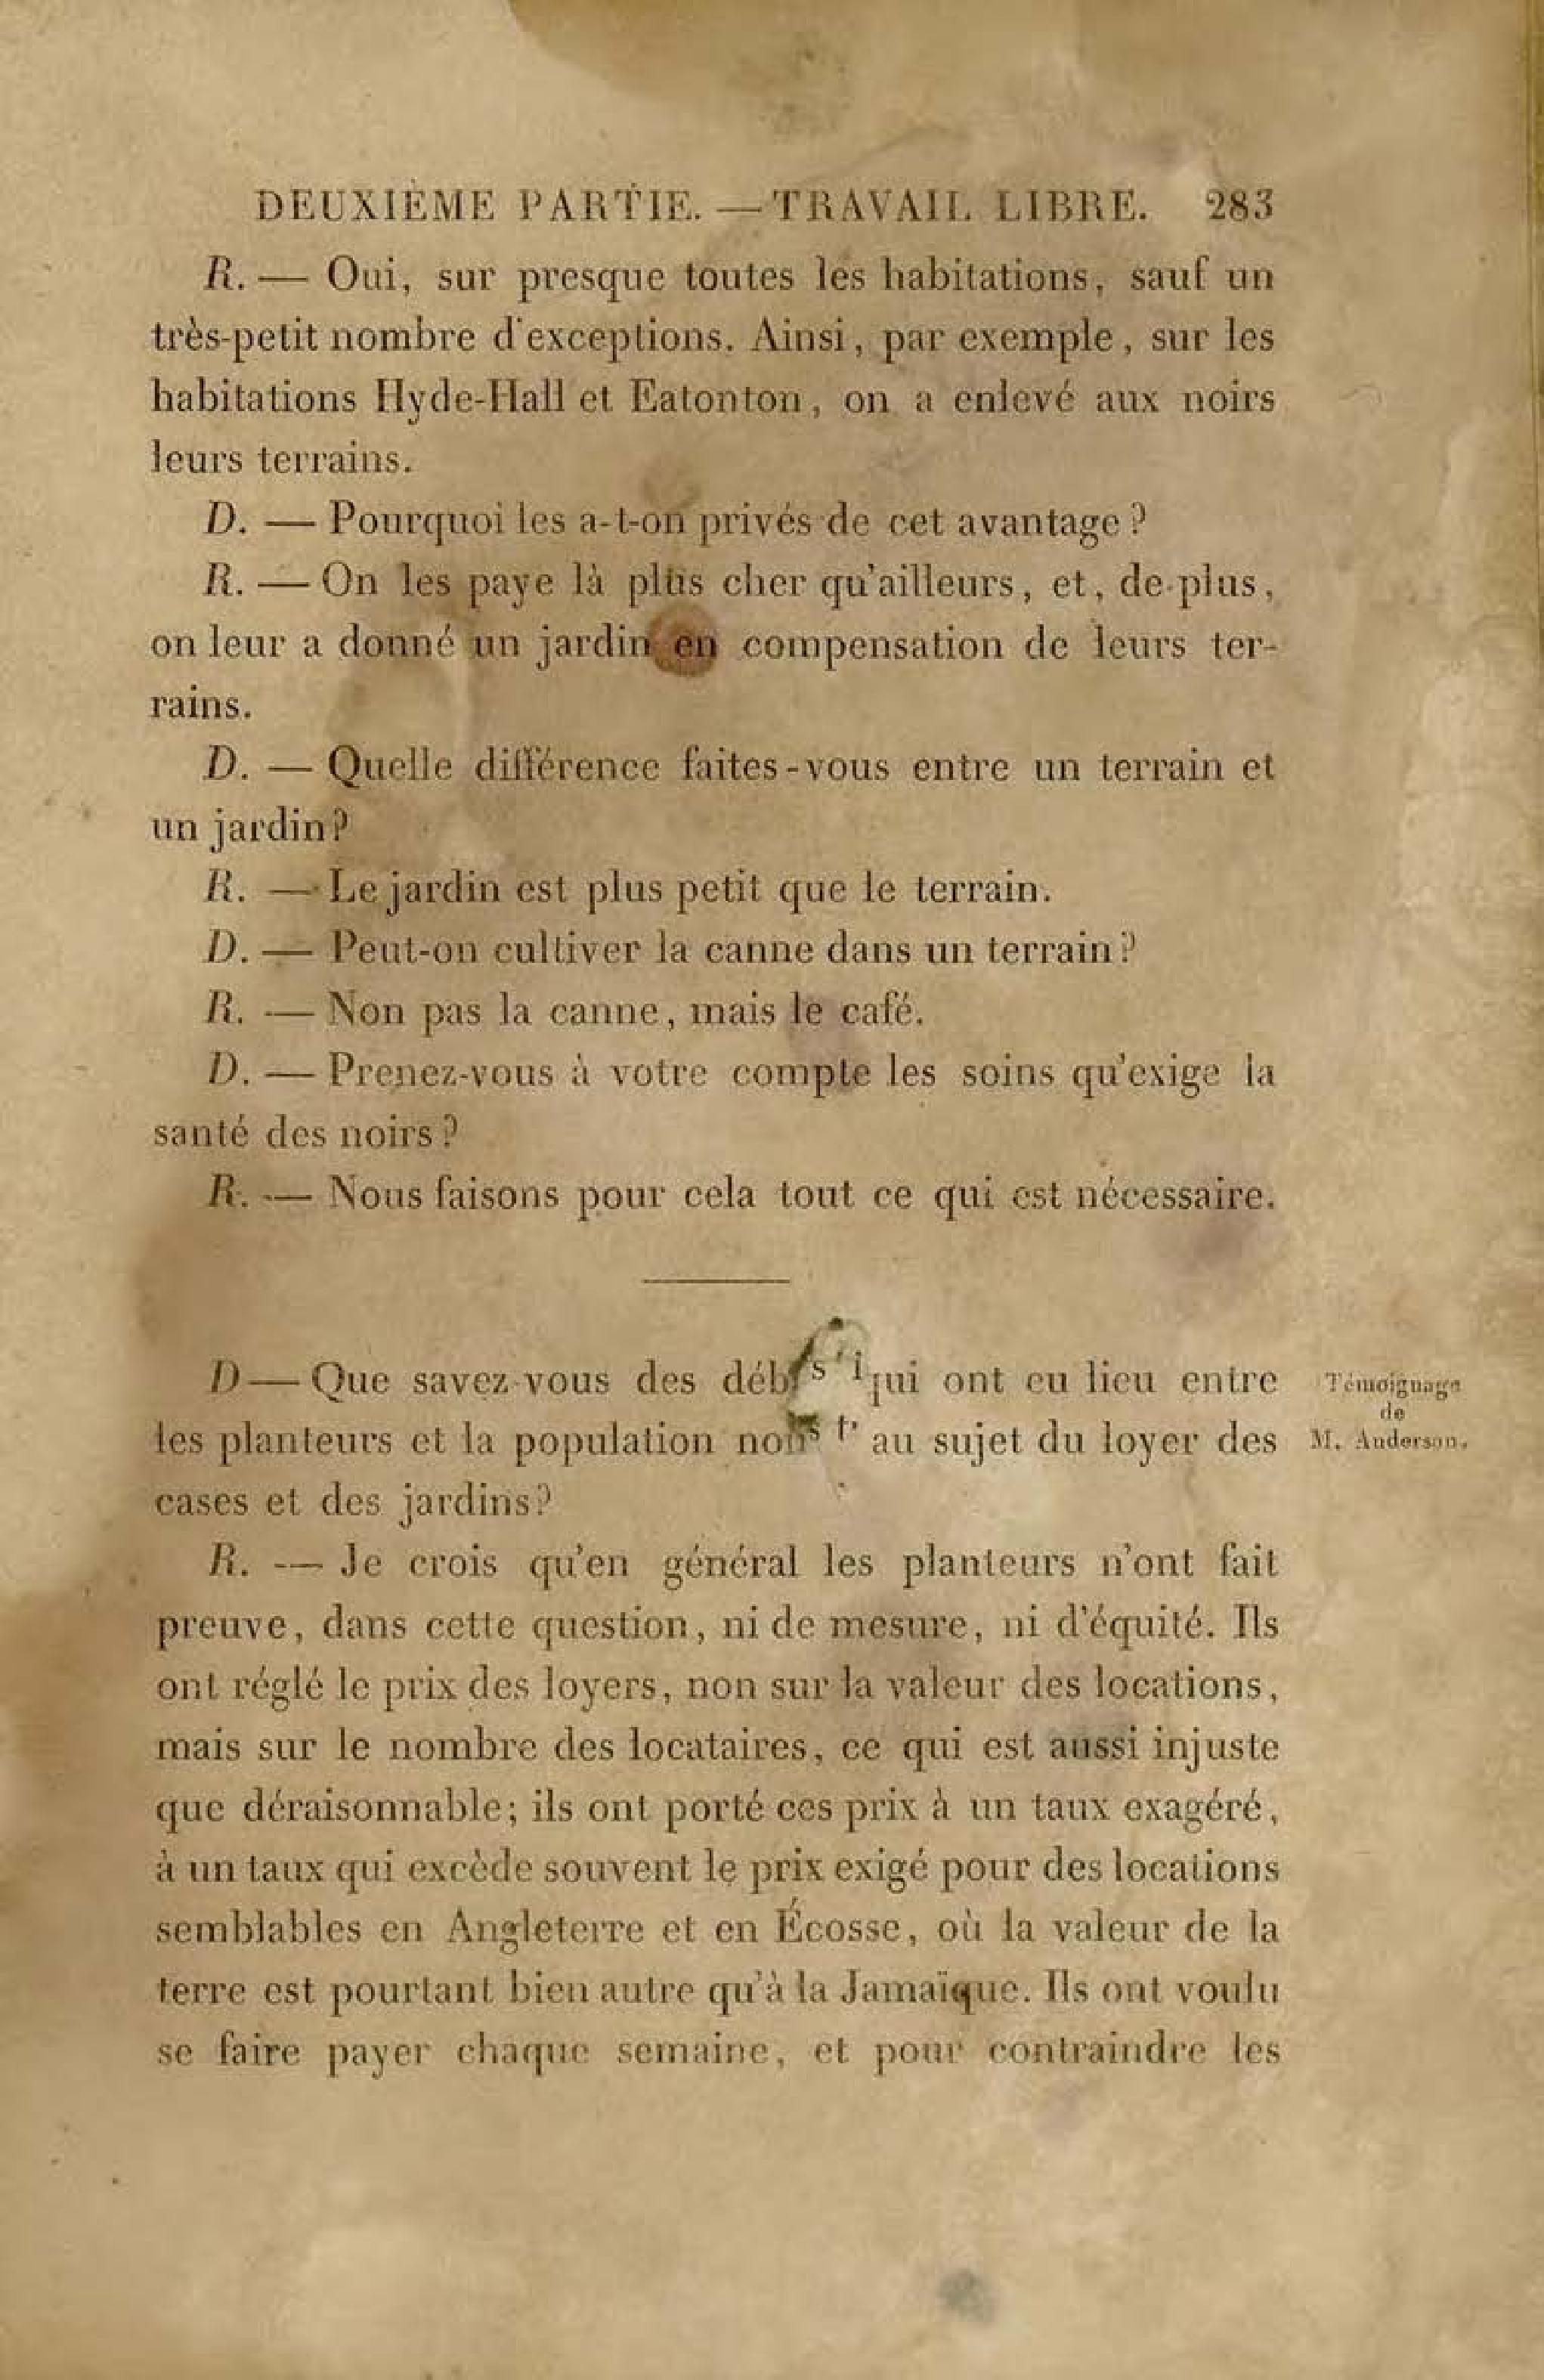 DEUXIÈME PARTIE. — TRAVAIL LIBRE. 283
R. — Oui, sur presque toutes les habitations, sauf un
très-petit nombre d'exceptions. Ainsi, par exemple, sur les
habitations Hyde-Hall et Eatonton, on a enlevé aux noirs
leurs terrains.
D. — Pourquoi les a-t-on privés de cet avantage ?
R. — On les paye là plus cher qu'ailleurs, et, de plus,
on leur a donné un jardin en compensation de leurs ter-
rains.
D. — Quelle différence faites-vous entre un terrain et
un jardin ?
R. — Le jardin est plus petit que le terrain.
D. — Peut-on cultiver la canne dans un terrain ?
R. — Non pas la canne, mais le café.
D. — Prenez-vous à votre compte les soins qu'exige la
santé des noirs ?
R. — Nous faisons pour cela tout ce qui est nécessaire.
D — Que savez-vous des qui ont eu lieu entre
les planteurs et la population au sujet du loyer des
cases et des jardins ?
Témoignage
de
M. Anderson.
R. — Je crois qu'en général les planteurs n'ont fait
preuve, dans cette question, ni de mesure, ni d'équité. Ils
ont réglé le prix des loyers, non sur la valeur des locations,
mais sur le nombre des locataires, ce qui est aussi injuste
que déraisonnable; ils ont porté ces prix à un taux exagéré,
à un taux qui excède souvent le prix exigé pour des locations
semblables en Angleterre et en Écosse, où la valeur de la
terre est pourtant bien autre qu'à la Jamaïque. Ils ont voulu
se faire payer chaque semaine, et pour contraindre les